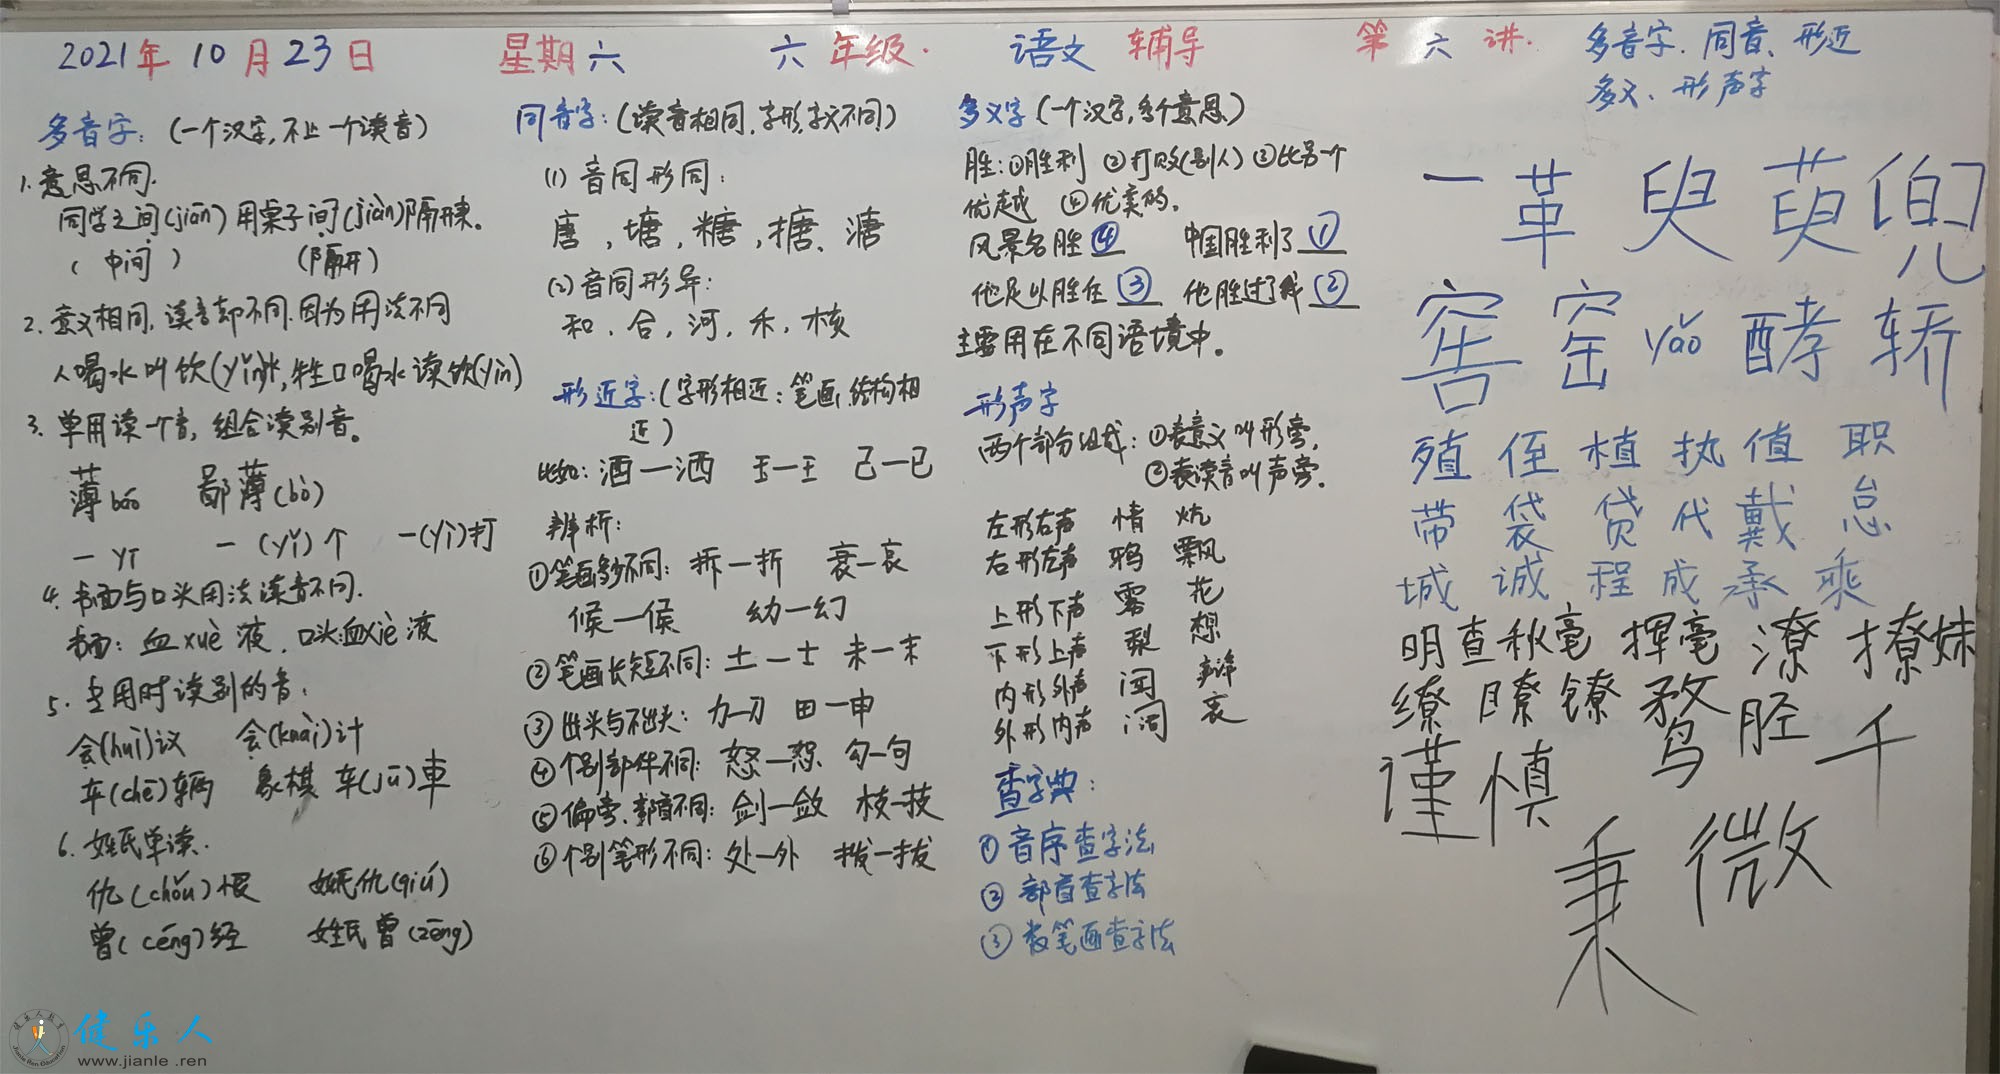 2021年10月23日 星期六 六年级. 语文 辅导 第六讲. 多音字.同音、形近
多义、形声字
多音字:(一个汉字,不止一个读音)
1.意思不同.
同学之间(jiān)用桌子间(jiàn)隔开来。
(中间) (隔开)
2.意义相同,读音却不同.因为用法不同
人喝水叫饮(yǐn)水,牲口喝水读饮(yìn)
3.单用读一个音,组合读别音。
薄báo 鄙薄(bò)
一 yī 一(yí)个 一(yì)打
4.书面与口头用法读音不同.
书面:血xuè液.口头:血xiě液
5.专用时读别的音.
会(huì)议 会(kuài)计
车(chē)辆 象棋 车(jū)車
6.姓氏单读.
仇(chóu)恨 姓氏仇(qiú)
曾(céng)经 姓氏曾(zēng)
同音字:(读音相同,字形,字义不同)
(1)音同形同:
唐,塘,糖,搪、溏
(2)音同形异:
和、合,河,禾,核
形近字:(字形相近:笔画,结构相
近)
比如:酒一洒 玉一王 己一已
辨析:
①笔画多少不同:拆一折 衰一哀
候一侯 幼一幻
②笔画长短不同:土一士 未一末
③出头与不出头:力一刀 田一申
④个别部件不同:怒一恕 勾一句
⑤偏旁、部首不同:剑一敛 枝一技
⑥个别笔形不同:处一外 拨一拔
多义字(一个汉字,多个意思)
胜:①胜利 ②打败(别人) ③比另一个
优越 ④优美的。
风景名胜④ 中国胜利了①
他足以胜任③ 他胜过了我②
主要用在不同语境中。
形声字
两个部分组成:①表意义叫形旁,
②表读音叫声旁.
左形右声 情 炕
右形左声 鸦 飘
上形下声 雾 花
下形上声 梨 想
内形外声 闻 辩
外形内声 阔 衷
查字典:
①音序查字法
②部首查字法
③数笔画查字法
一 革 臾 萸 兜
窖 窑 yáo 酵 轿
殖 侄 植 执 值 职
带 袋 贷 代 戴 怠
城 诚 程 成 承 乘
明查秋毫 挥毫 潦 撩妹
缭 瞭 镣 鹜 胫 千
谨慎
秉 微
健乐人
www.jianle.ren